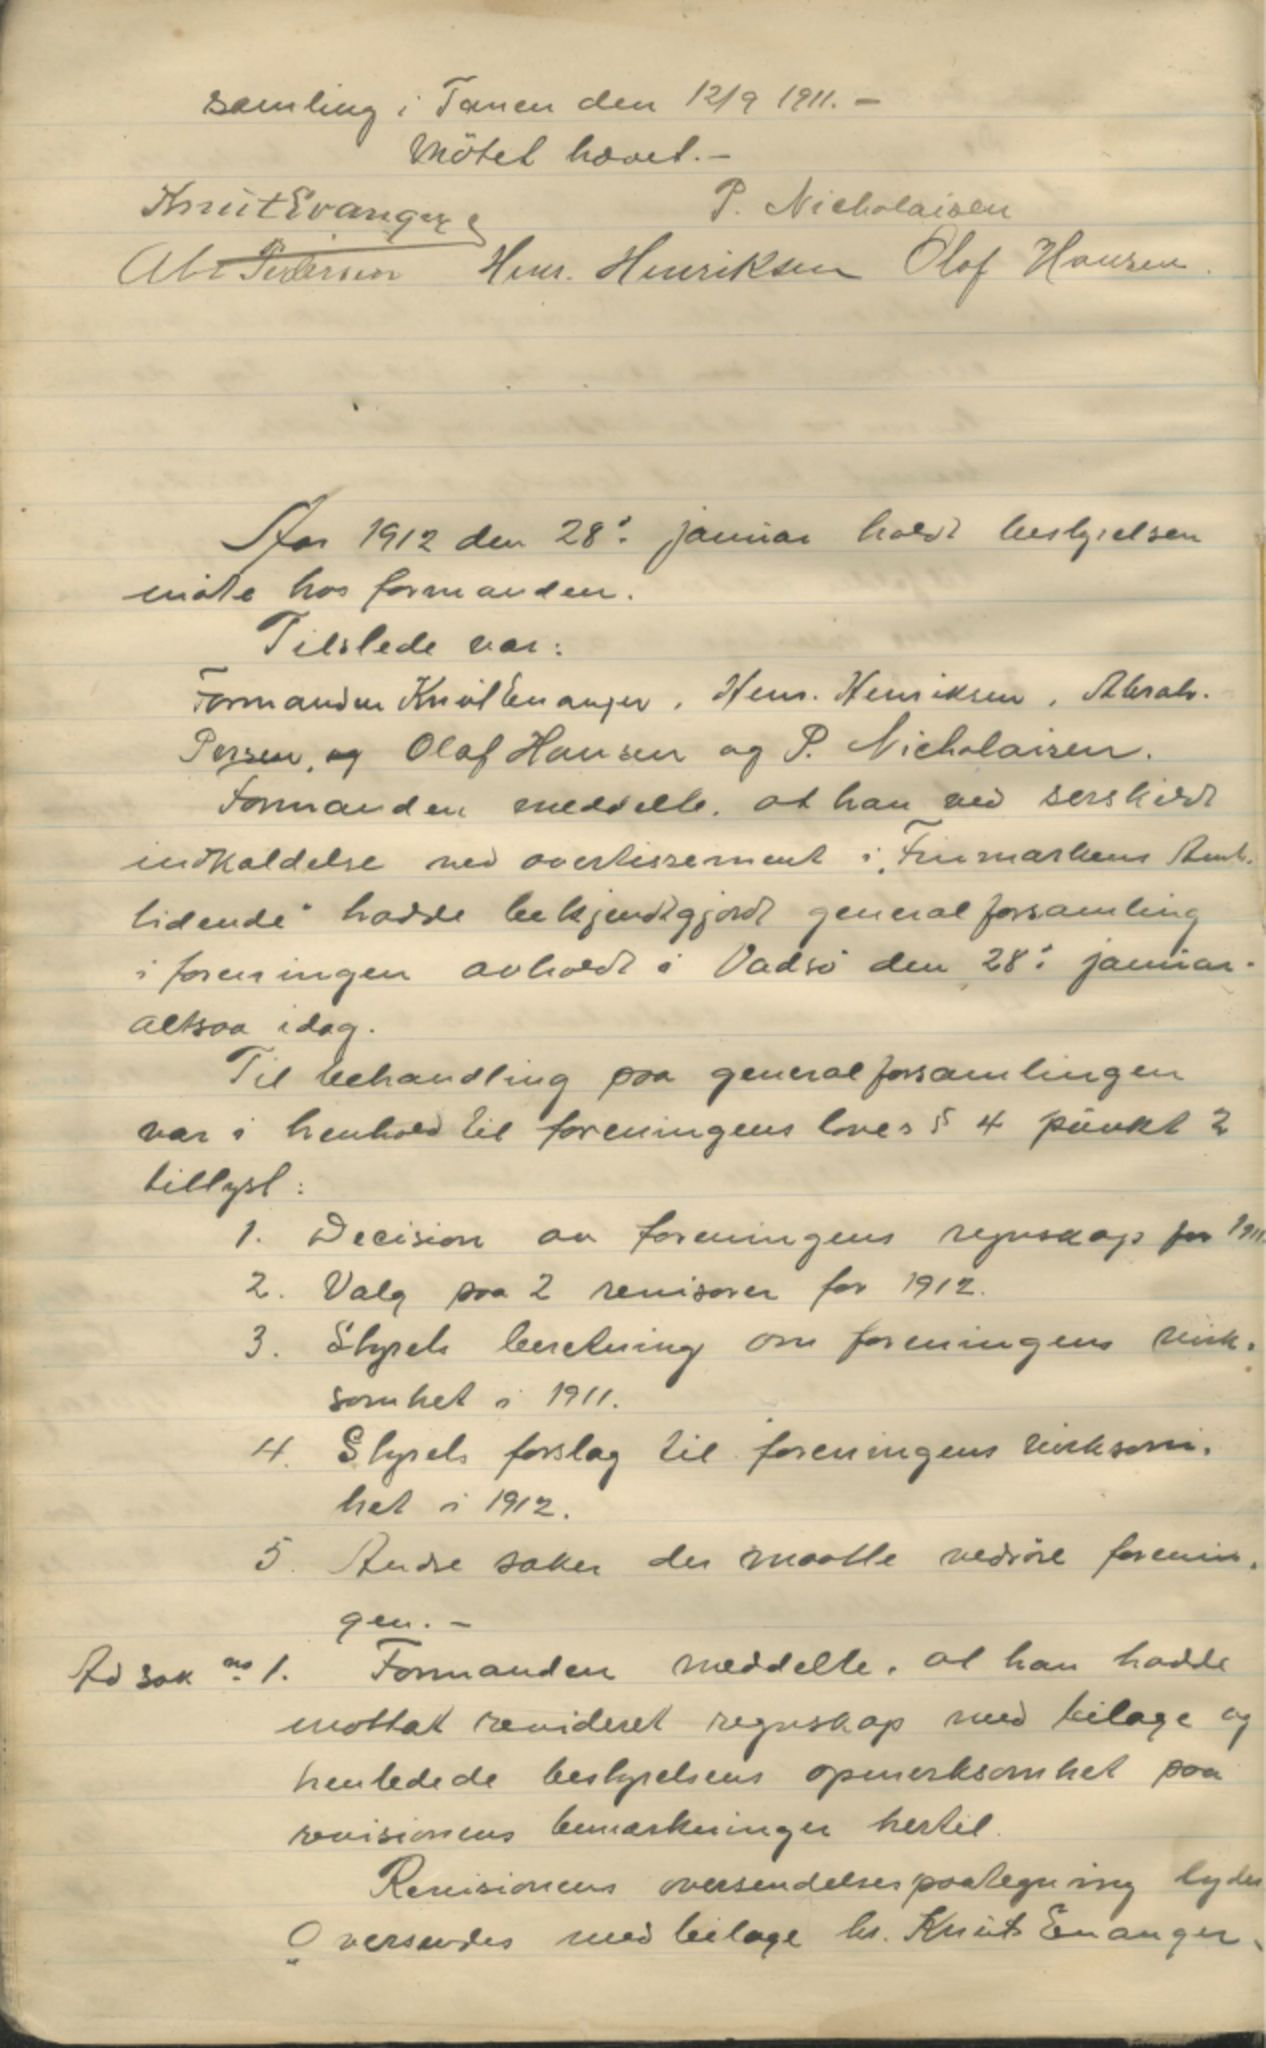 samling i Tanen den 12/9 1911. –
Mötet hævet. –
Knut Evanger P. Nicholaisen
Abr Pedersen Henr. Henriksen Olaf Hansen.
Aar 1912 den 28': januar holdt bestyrelsen
möte hos formanden.
Tilstede var:
Formanden Knut Evanger, Henr. Henriksen, Abrah.
Persen, og Olaf Hansen og P. Nicholaisen.
Formanden meddelte, at han ved serskildt
indkaldelse ved avertissement i „Finmarkens Amts-
tidende" hadde bekjendtgjordt generalforsamling
i foreningen avholdt i Vadsö den 28': januar -
altsaa idag.
Til behandling paa generalforsamlingen
var i henhold til foreningens love s § 4 punkt 2
tillyst:
1. Decision av foreningens regnskap for 1911.
2. Valg paa 2 revisorer for 1912.
3. Styrets beretning om foreningens virk-
somhet i 1911.
4. Styrets forslag til foreningens virksom-
het i 1912.
5. Andre saker der maatte vedröre forenin-
gen. –
Ad sak no 1. Formanden meddelte, at han hadde
mottat revideret regnskap med bilage og
henledede bestyrelsens opmerksomhet paa
revisionens bemærkninger hertil.
Revisionens oversendelsespaategning lyder
Oversendes med bilage hr. Knut Evanger,